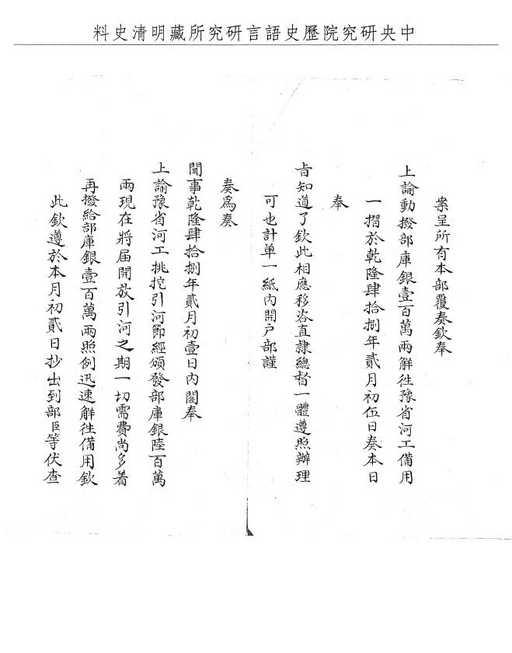 中央研究院歷史語言研究所藏明清史料
案呈所有本部覆奏欽奉
上諭動撥部庫銀壹百萬兩解往豫省河工備用
一摺於乾隆肆拾捌年貳月初伍日奏本日
奉
旨知道了欽此相應移咨直隸總督一體遵照辦理
可也計单一紙內開户部謹
奏為奏
聞事乾隆肆拾捌年貳月初壹日內閣奉
上諭豫省河工挑挖引河節經頒發部庫銀陸百萬
兩現在將届開放引河之期一切需費尚多着
再撥給部庫銀壹百萬兩照例迅速解往備用欽
此欽遵於本月初貳日抄出到部臣等伏查